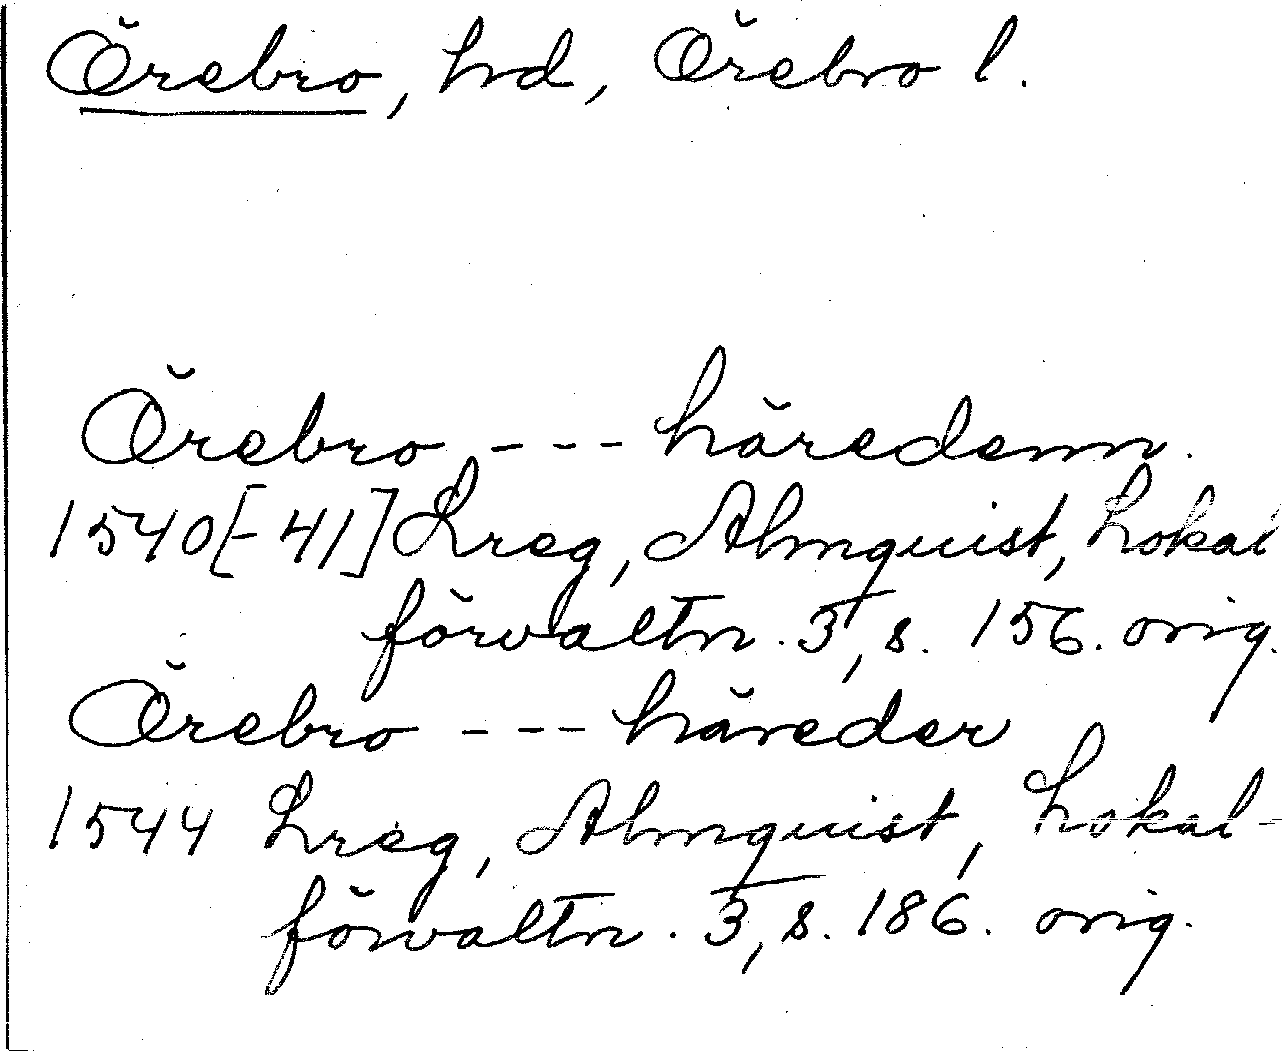 Örebro, hd, Örebro l.
Örebro --- häredenn.
1540[-41] Lreg, Almquist, Lokal
förvaltn. 3, s. 156. orig.
Örebro --- häreder
1544 Lreg, Almquist, Lokal-
förvaltn. 3, s. 186. orig.